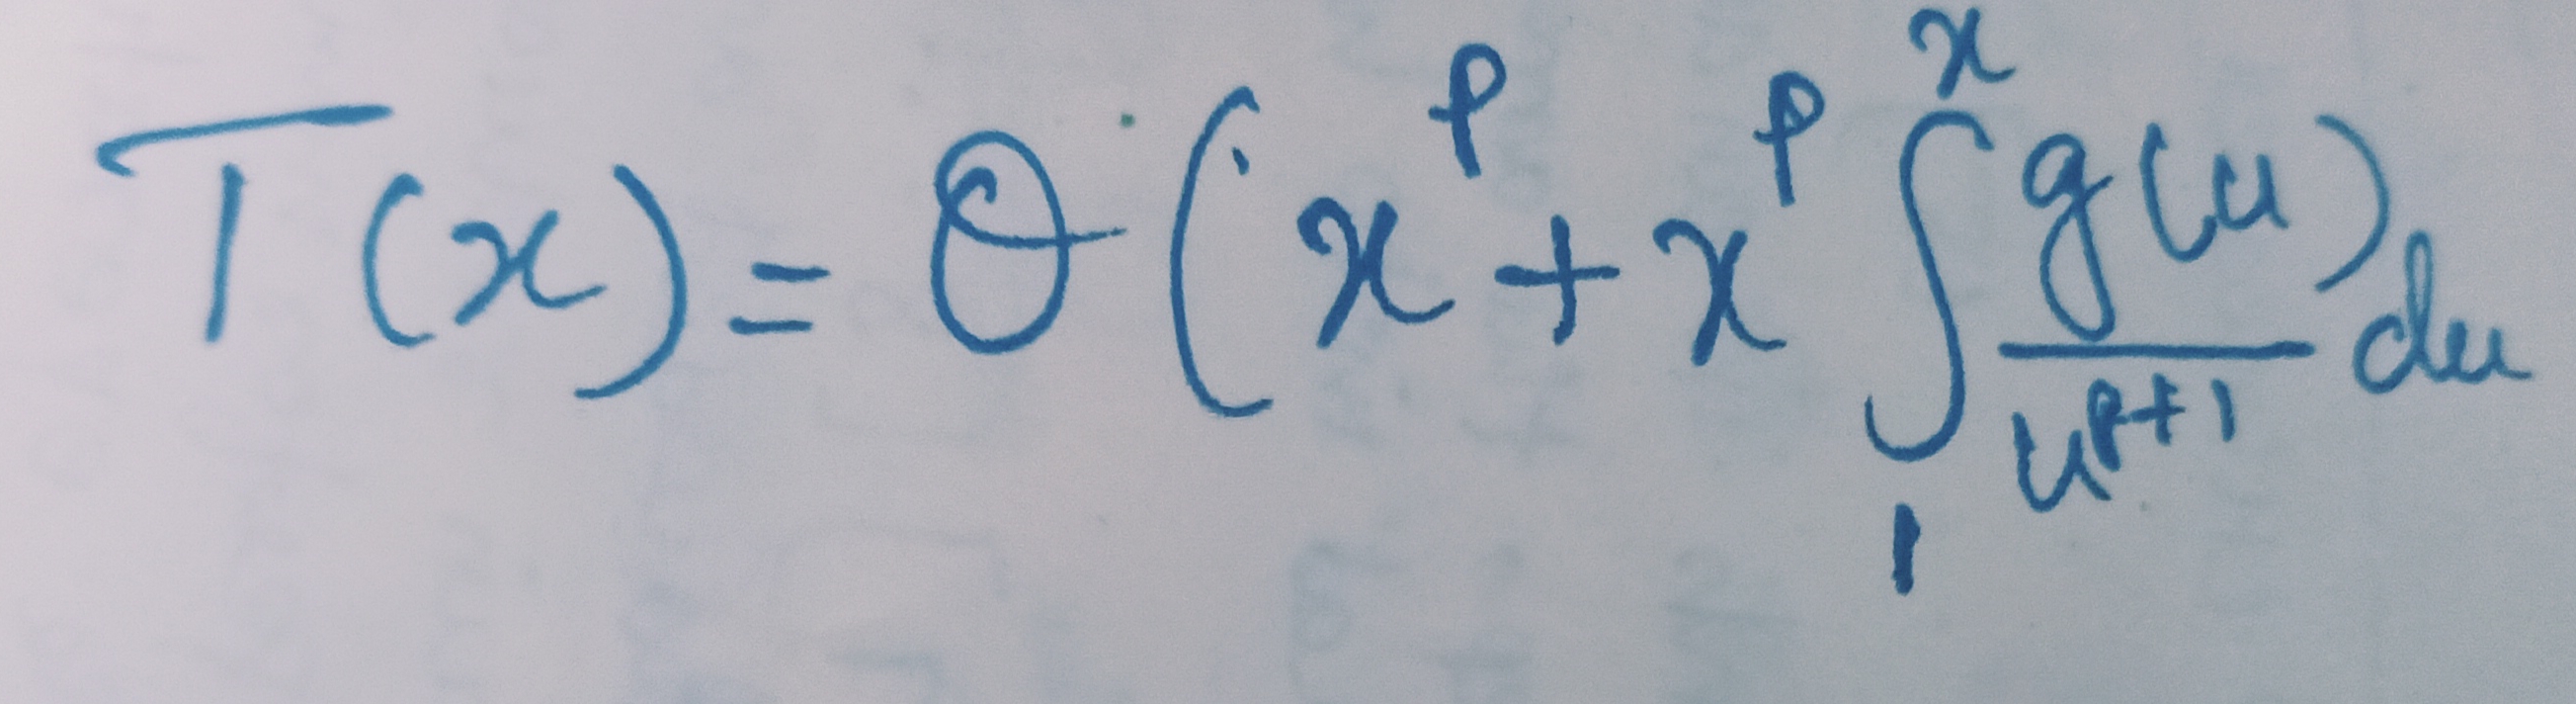 T(x) = Θ(x^p + x^p ∫_1^x g(u)/u^{p+1} du